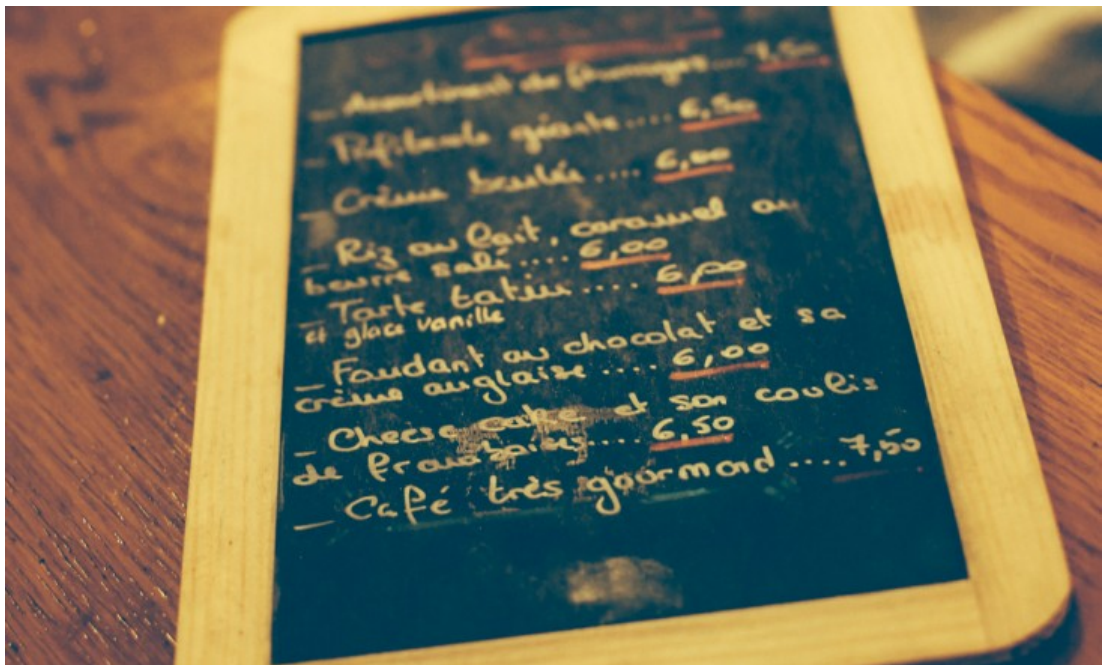 _ Assortiment de fromages... 7,50
_ Profiterole géante.... 6,50
_ Crème brulée .... 6,00
_ Riz au lait, caramel au
beurre salé .... 6,00
_ Tarte tatin .... 6,00
et glace vanille
_ Fondant au chocolat et sa
crème anglaise .... 6,00
_ Cheese cake et son coulis
de framboises.... 6,50
_ Café très gourmand ....7,50